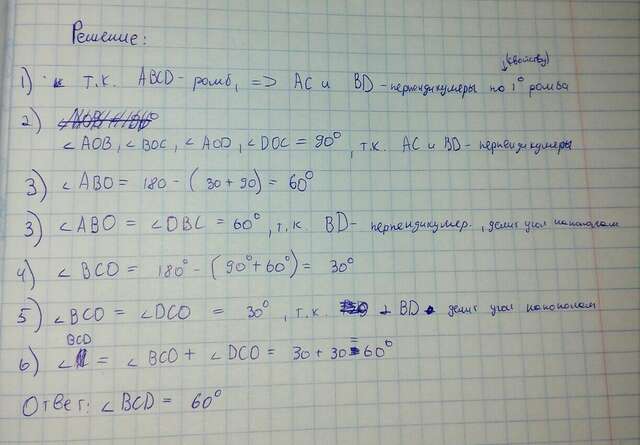 Решение:
(свойству)
1) т.к. ABCD - ромб, => AC и BD - перпендикумеры по 1° ромба
2)
∠AOB, ∠BOC, ∠AOD, ∠DOC = 90°, т.к. AC и BD - перпендикумеры
3) ∠ABO = 180 - (30 + 90) = 60°
3) ∠ABO = ∠OBC = 60°, т.к. BD - перпендикумер., делит угол напополам
4) ∠BCO = 180° - (90° + 60°) = 30°
5) ∠BCO = ∠DCO = 30°, т.к. ⊥ BD делит угол напополам
BCD
6) ∠ = ∠BCO + ∠DCO = 30 + 30 = 60°
Ответ: ∠BCD = 60°